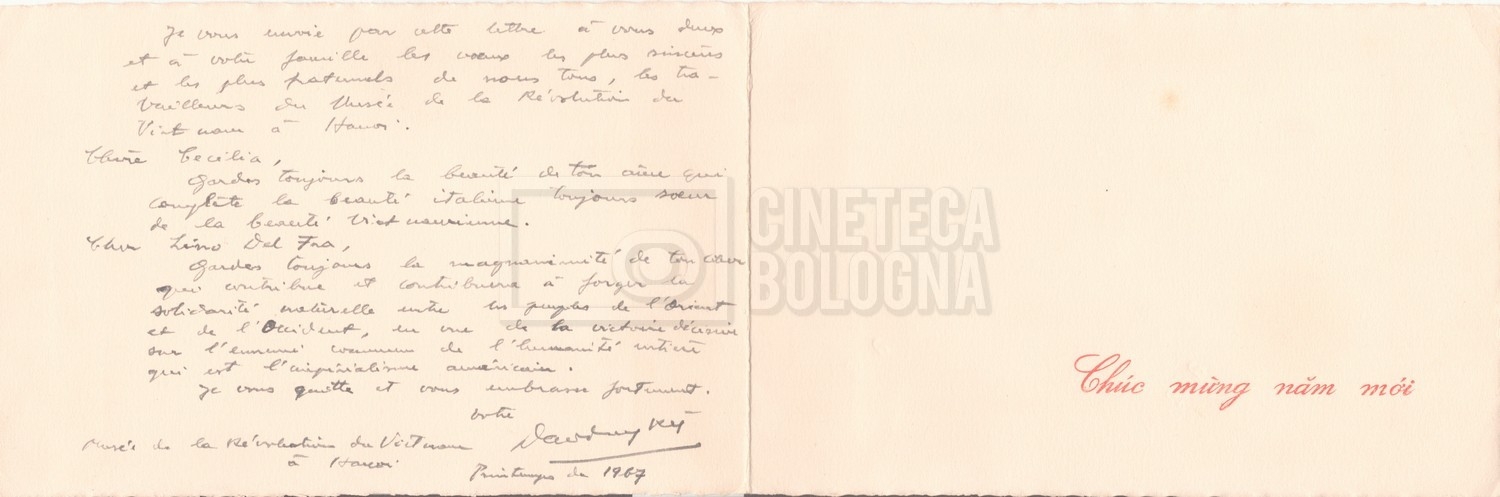 Je vous envoie par cette lettre à vous deux
et à votre famille les vœux les plus sincères
et les plus paternels de nous tous, les tra-
vailleurs du Musée de la Révolution du
Viet nam à Hanoi.
Chère Cecilia,
Gardes toujours la beauté de ton âme qui
complète la beauté italienne toujours sœur
de la beauté Vietnamienne.
Cher Lino Del Fra,
Gardes toujours la magnanimité de ton cœur
qui contribue et contribuera à forger la
solidarité naturelle entre les peuples de l'Orient
et de l'Occident, en vue de la victoire décisive
sur l'ennemi commun de l'humanité entière
qui est l'impérialisme américain.
Je vous quitte et vous embrasse fortement.
Votre
Musée de la Révolution du Vietnam
à Hanoi
Printemps de 1967
Chúc mừng năm mới
CINETECA
BOLOGNA